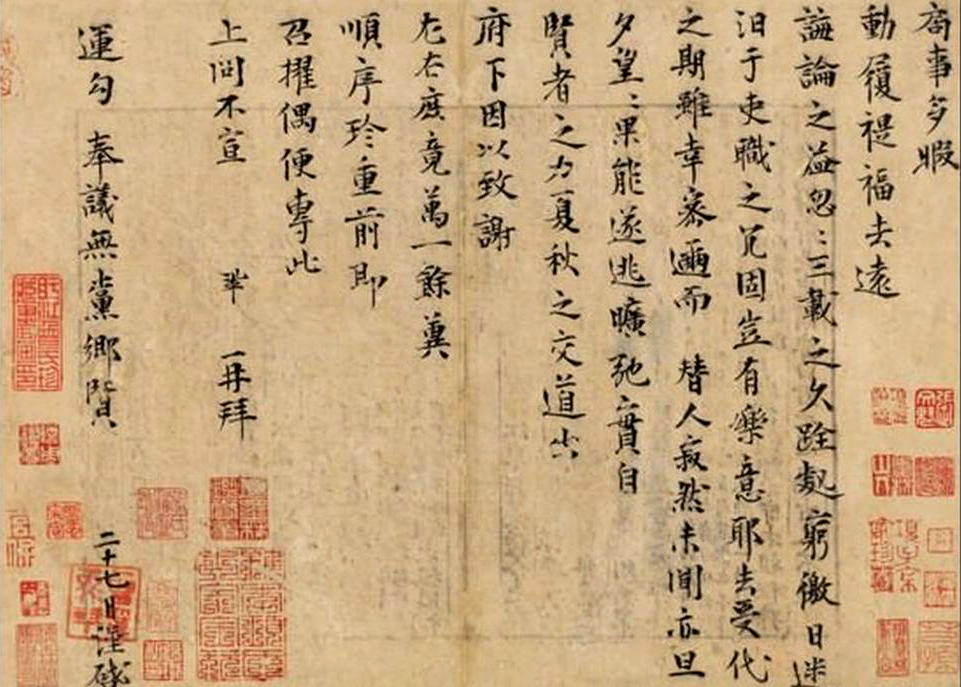 局事多暇
動履禔福去遠
誨論之益忽〻三載之久跧処窮徼日迷
汩于吏職之冗固豈有樂意耶去受代
之期雖幸密邇而 替人寂然未聞亦旦
夕望〻果能遂逃曠弛實自
賢者之力夏秋之交道出
府下因以致謝
左右庶竟萬一餘冀
順序珍重前即
召擢偶便專此
上問不宣 鞏 再拜
運勾 奉議無黨鄉賢 二十七日謹啓